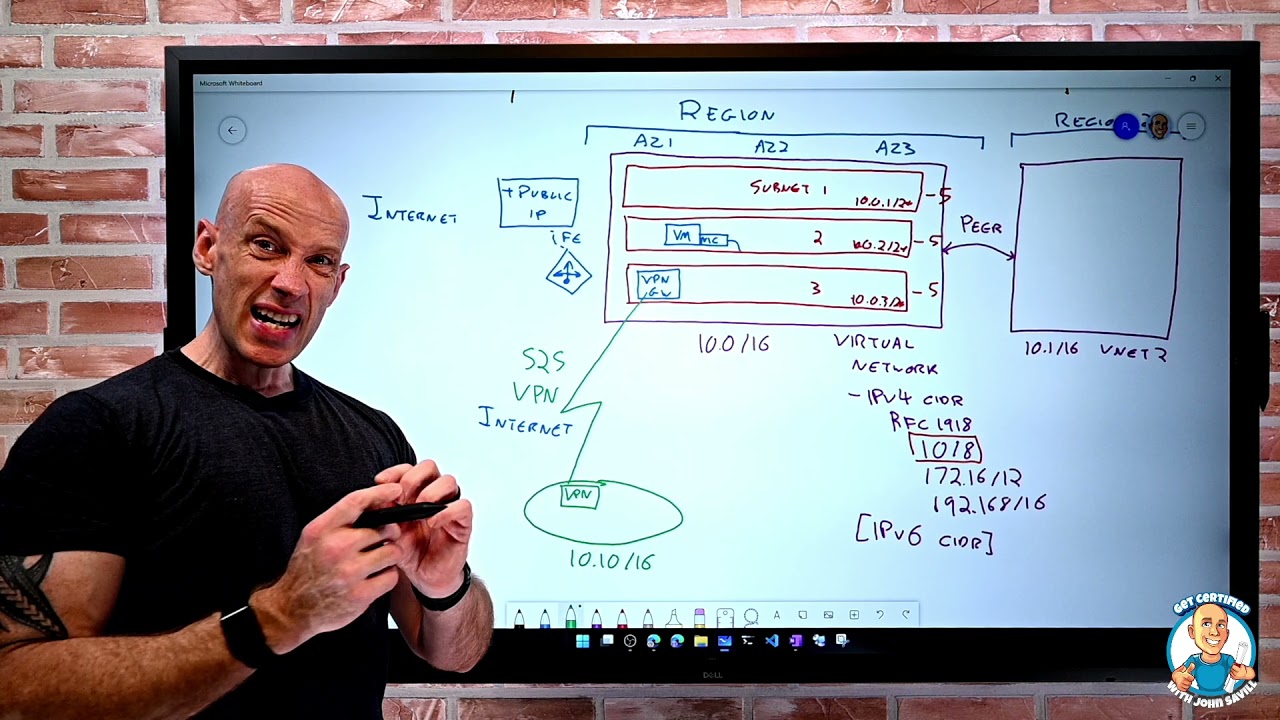 Microsoft Whiteboard
REGION
AZ1 AZ2 AZ3
INTERNET
+PUBLIC
IP
SUBNET 1
-5
iFE
VM
2
-5
PEER
VPN
GW
3
-5
10.0/16
VIRTUAL
NETWORK
10.1/16 VNET 2
S2S
VPN
INTERNET
- IPV4 CIDR
RFC 1918
10/8
172.16/12
192.168/16
[IPv6 CIDR]
VPN
10.10/16
DELL
GET CERTIFIED
WITH JOHN SAVILL